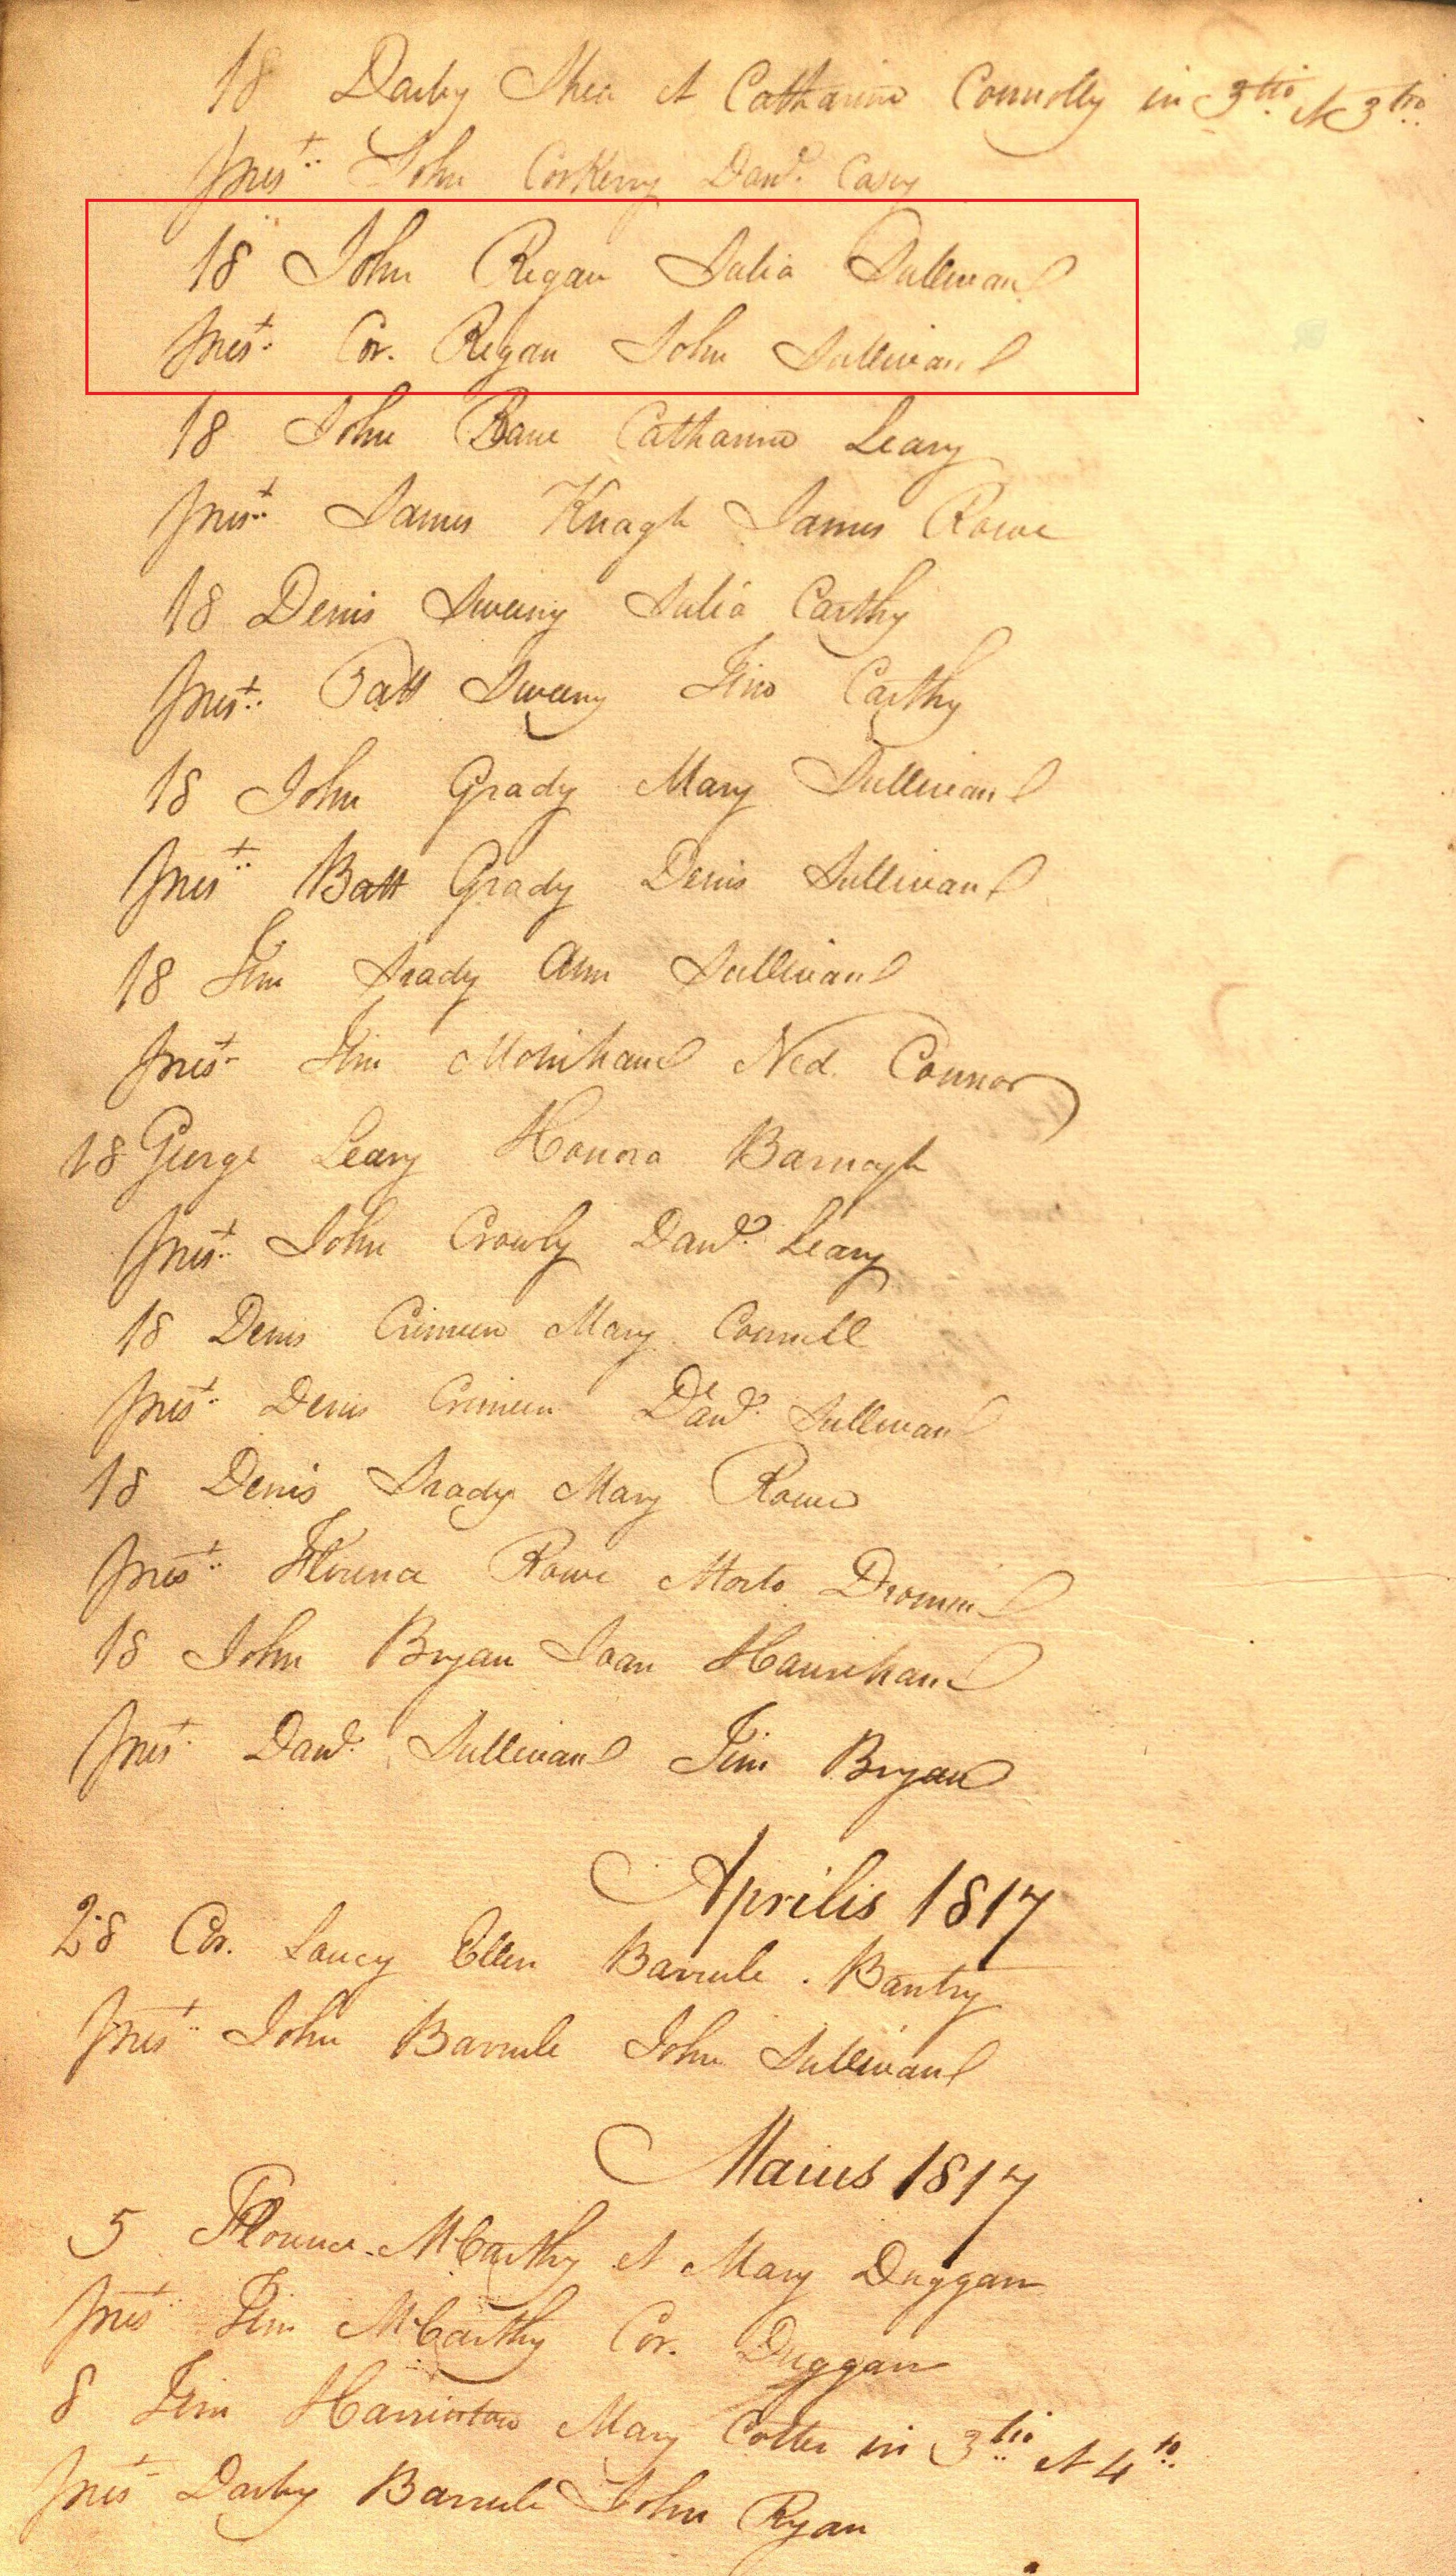 18 Darby Shea et Catharine Connolly in 3tio et 3tio
prest John Corkerry Danl. Casey
18 John Regan Julia Sullivan
prest Cor. Regan John Sullivan
18 John Bane Catharine Leary
prest James Keagh James Rowe
18 Denis Sweeny Julia Carthy
prest Patt Sweeny Carthy
18 John Grady Mary Sullivan
prest Batt Grady Denis Sullivan
18 Tim Ann Sullivan
prest Tim Monihane Ned Connor
18 George Leary Honora Barnagh
prest John Crowly Danl. Leary
18 Denis Crimeen Mary Connell
prest Denis Crimeen Danl. Sullivan
18 Denis Mary Rowe
prest Florence Rowe
18 John Bryan Joan Hanrihane
prest Danl. Sullivan Tim Bryan
Aprilis 1817
28 Cor. Lucey Ellen Barrule . Bantry
prest John Barrule John Sullivan
Maius 1817
5 Florence McCarthy et Mary Duggan
prest Tim McCarthy Cor. Duggan
8 Tim Harrinton Mary Cotter in 3tio et 4to
prest Darby Barrule John Ryan